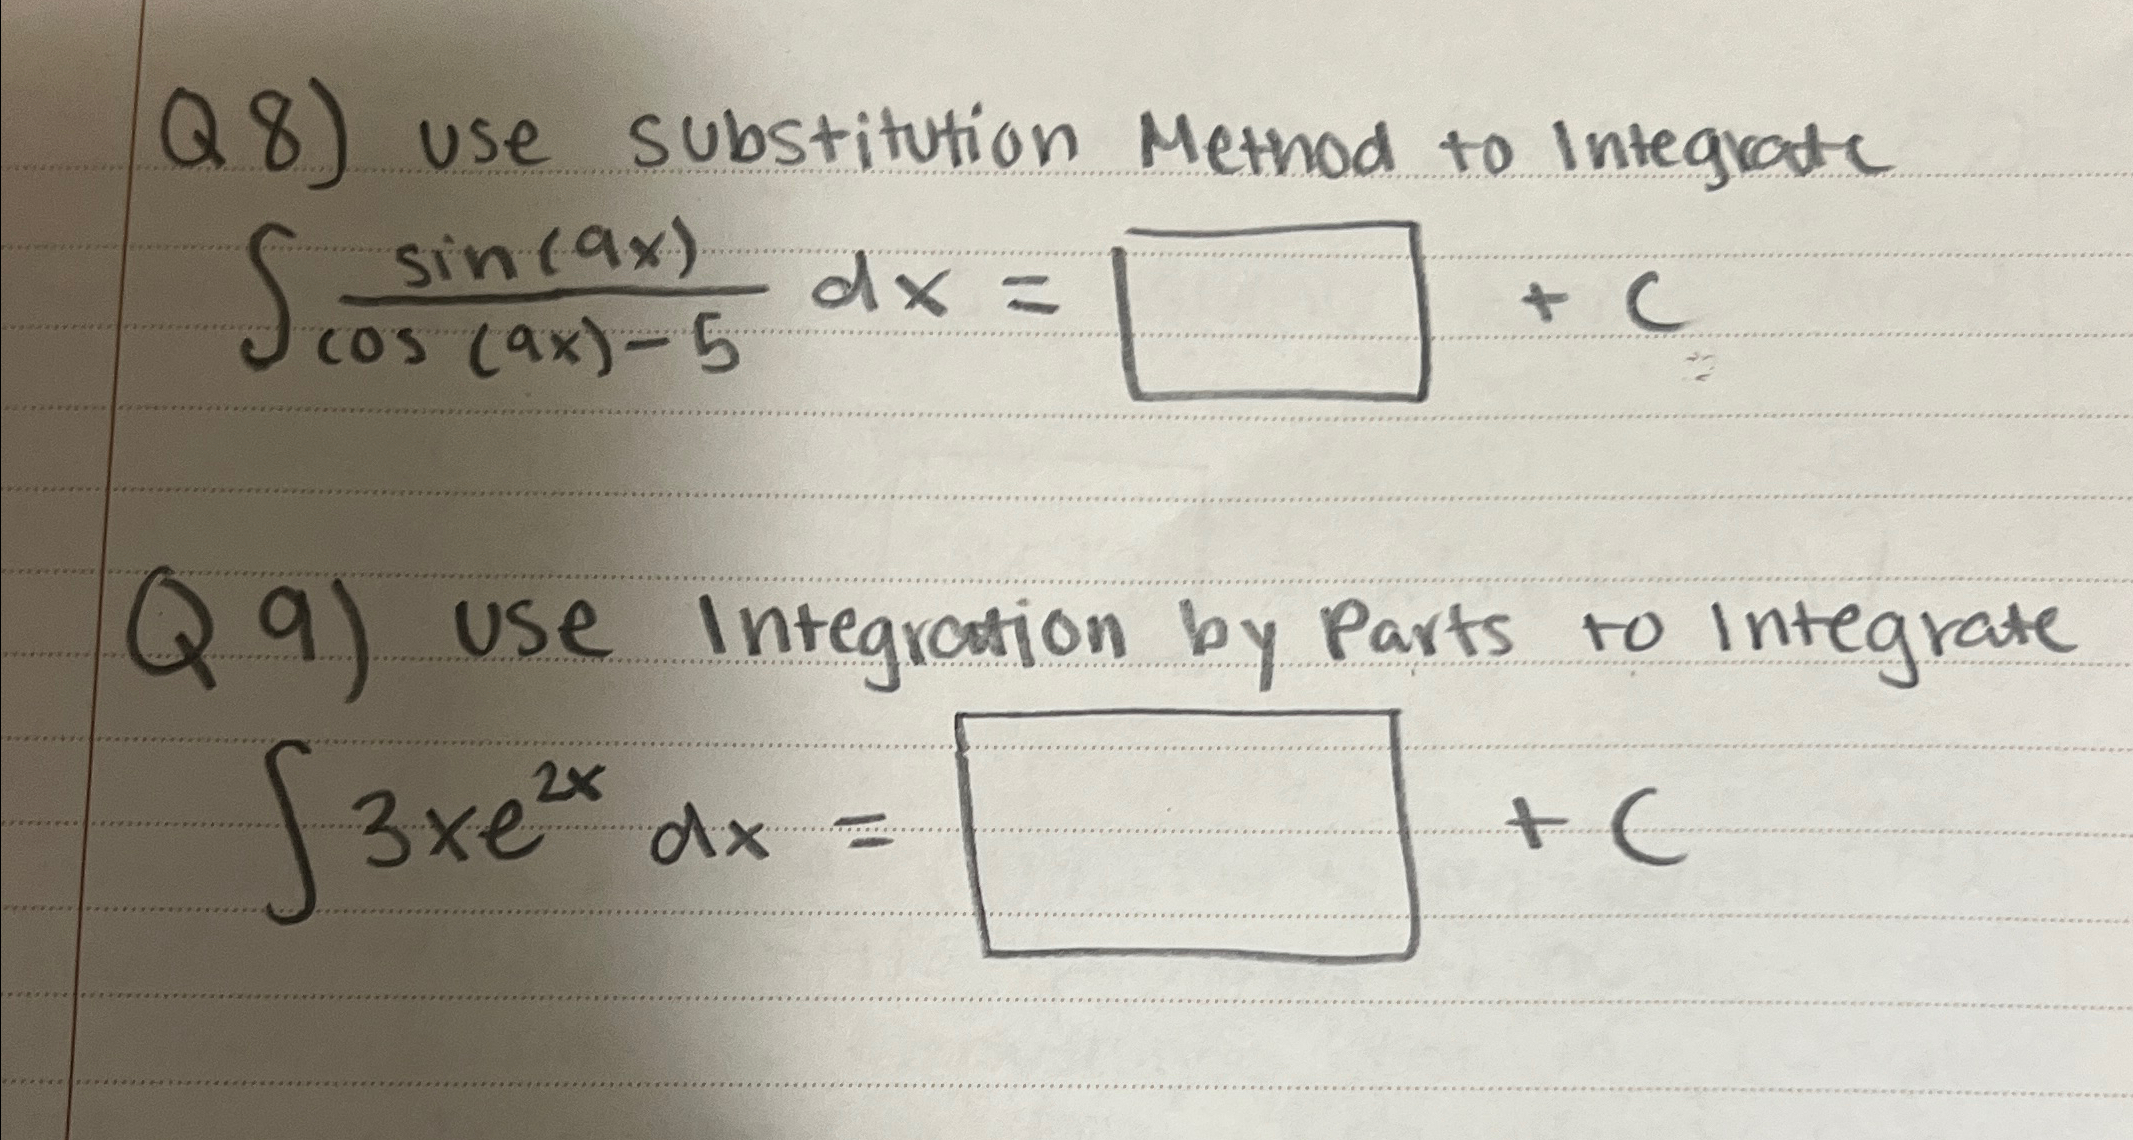 Q8) use substitution Method to Integrate
∫ sin(9x) / cos(9x)-5 dx = + C
Q9) use Integration by Parts to Integrate
∫ 3xe^2x dx = + C